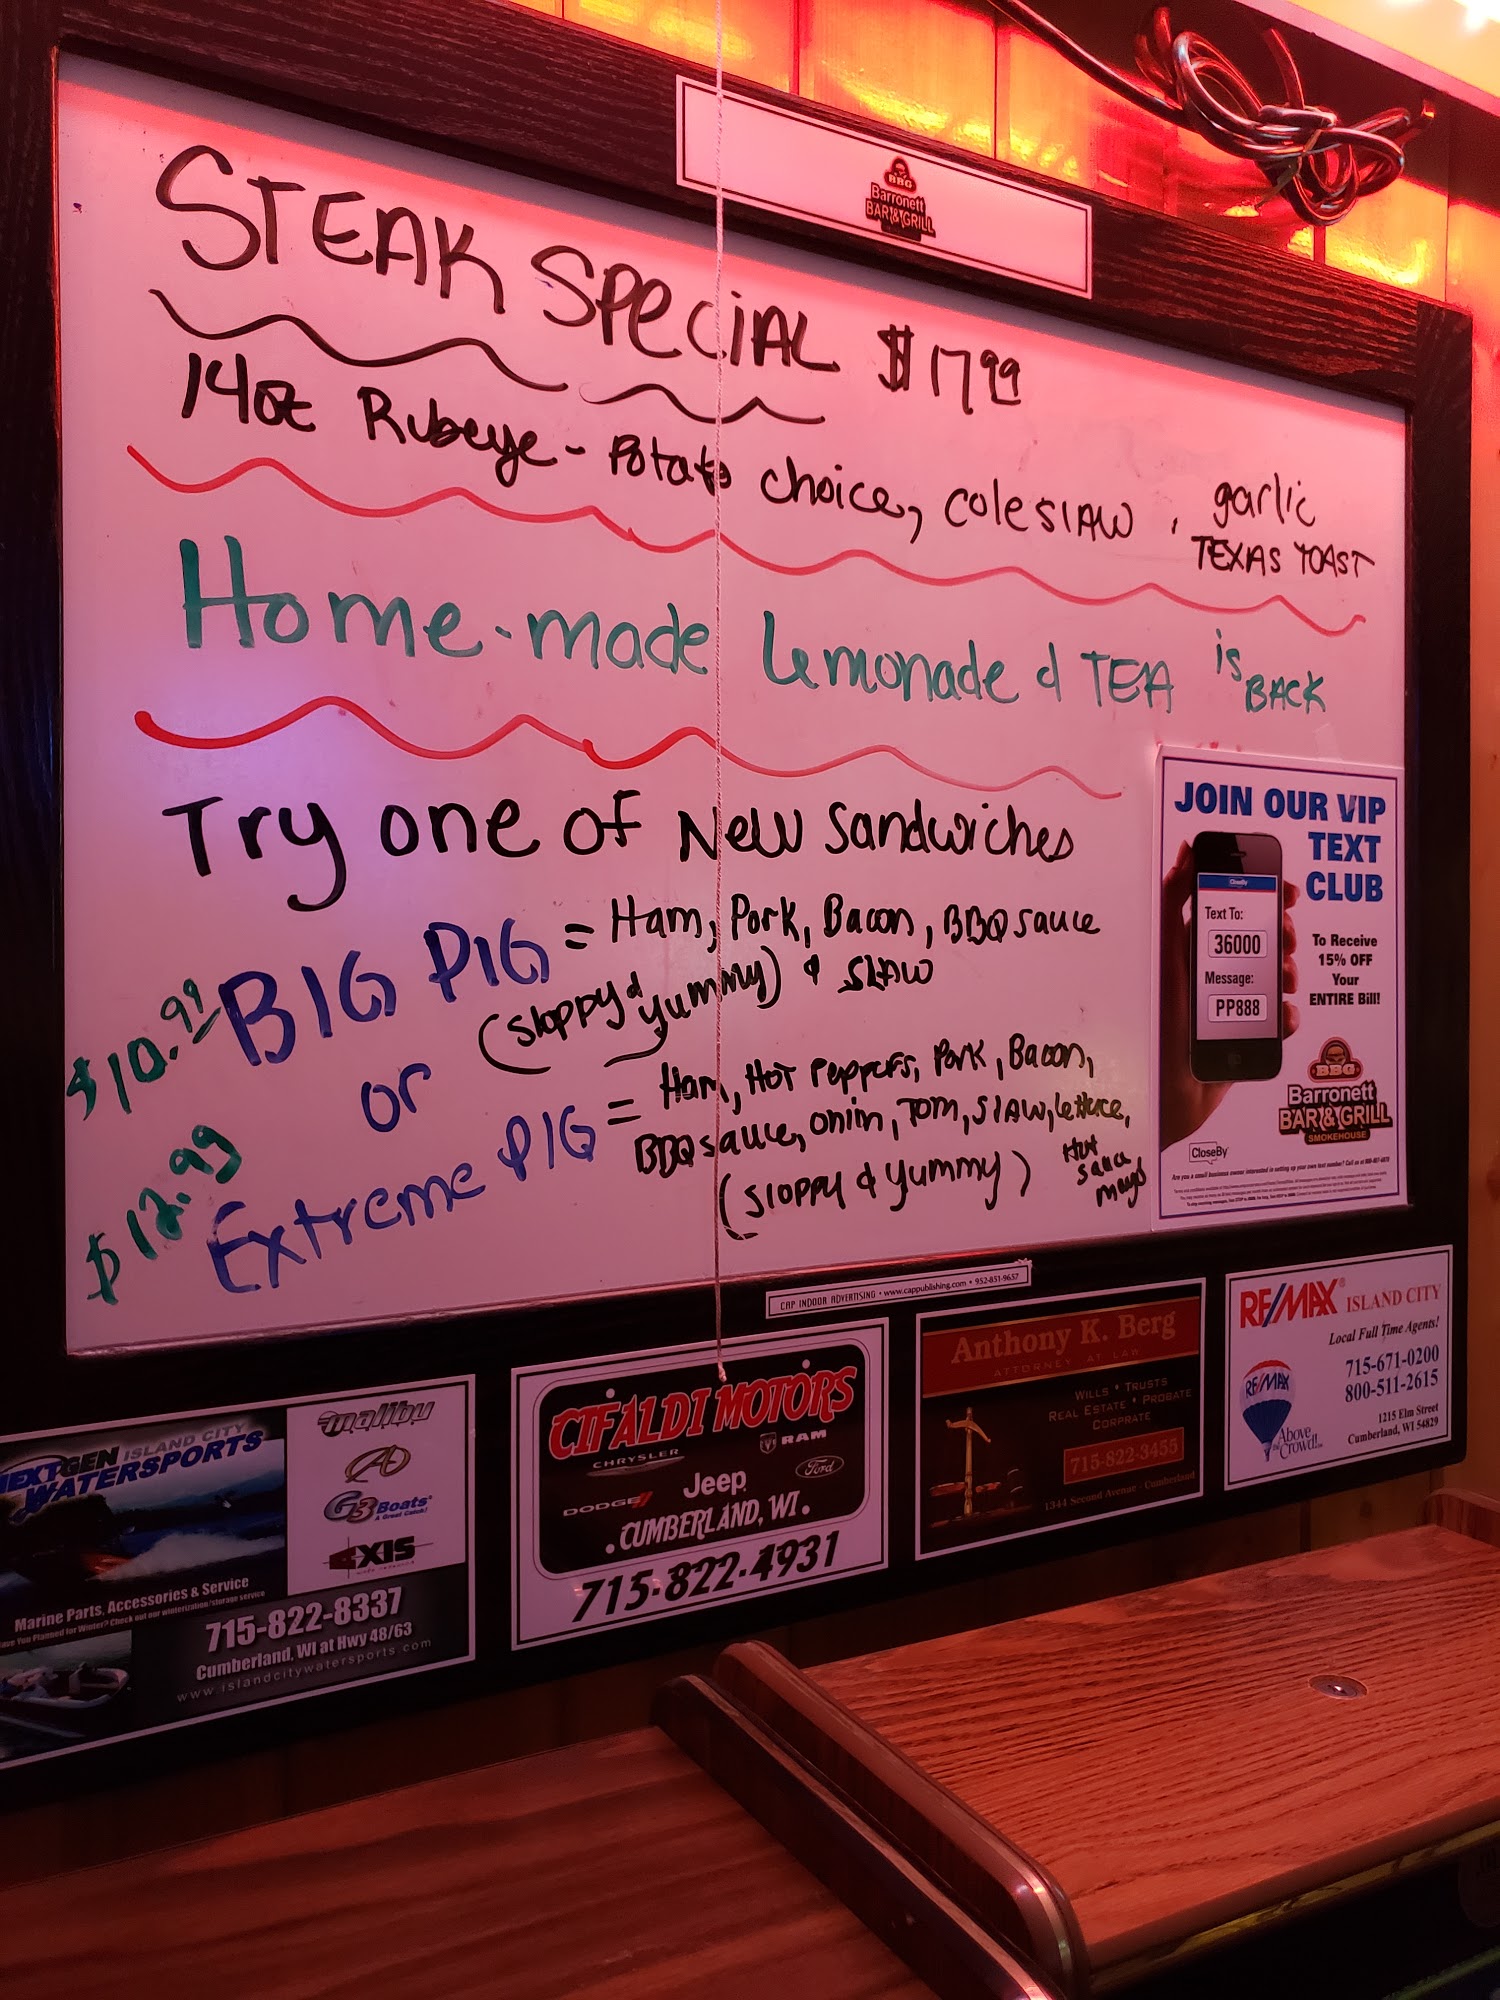 BBG
Barronett
BAR & GRILL
STEAK SPECIAL $17.99
14oz Rubeye - Potato choice, coleslaw, garlic
TEXAS TOAST
Home-made Lemonade & TEA is BACK
Try one of New Sandwiches
$10.99 BIG PIG = Ham, Pork, Bacon, BBQ sauce
(sloppy & yummy) & SLAW
or
$12.99 Extreme PIG = Ham, HOT Peppers, Pork, Bacon,
BBQ sauce, onion, TOM, SLAW, lettuce,
(sloppy & yummy) Hot
sauce
mayo
JOIN OUR VIP
TEXT
CLUB
CloseBy
Text To:
36000
Message:
PP888
To Receive
15% OFF
Your
ENTIRE Bill!
BBG
Barronett
BAR & GRILL
SMOKEHOUSE
CloseBy
CAP INDOOR ADVERTISING • www.cappublishing.com • 952-851-9637
NEXTGEN ISLAND CITY
WATERSPORTS
malibu
G3 Boats
A Great Catch!
AXIS
Marine Parts, Accessories & Service
715-822-8337
Cumberland, WI at Hwy 48/63
www.islandcitywatersports.com
CIFALDI MOTORS
CHRYSLER
RAM
Jeep
Ford
DODGE
.CUMBERLAND, WI.
715-822-4931
Anthony K. Berg
ATTORNEY AT LAW
WILLS • TRUSTS
REAL ESTATE • PROBATE
CORPRATE
715-822-3455
1344 Second Avenue - Cumberland
RE/MAX® ISLAND CITY
Local Full Time Agents!
715-671-0200
800-511-2615
RE/MAX
Above
the Crowd!
1215 Elm Street
Cumberland, WI 54829